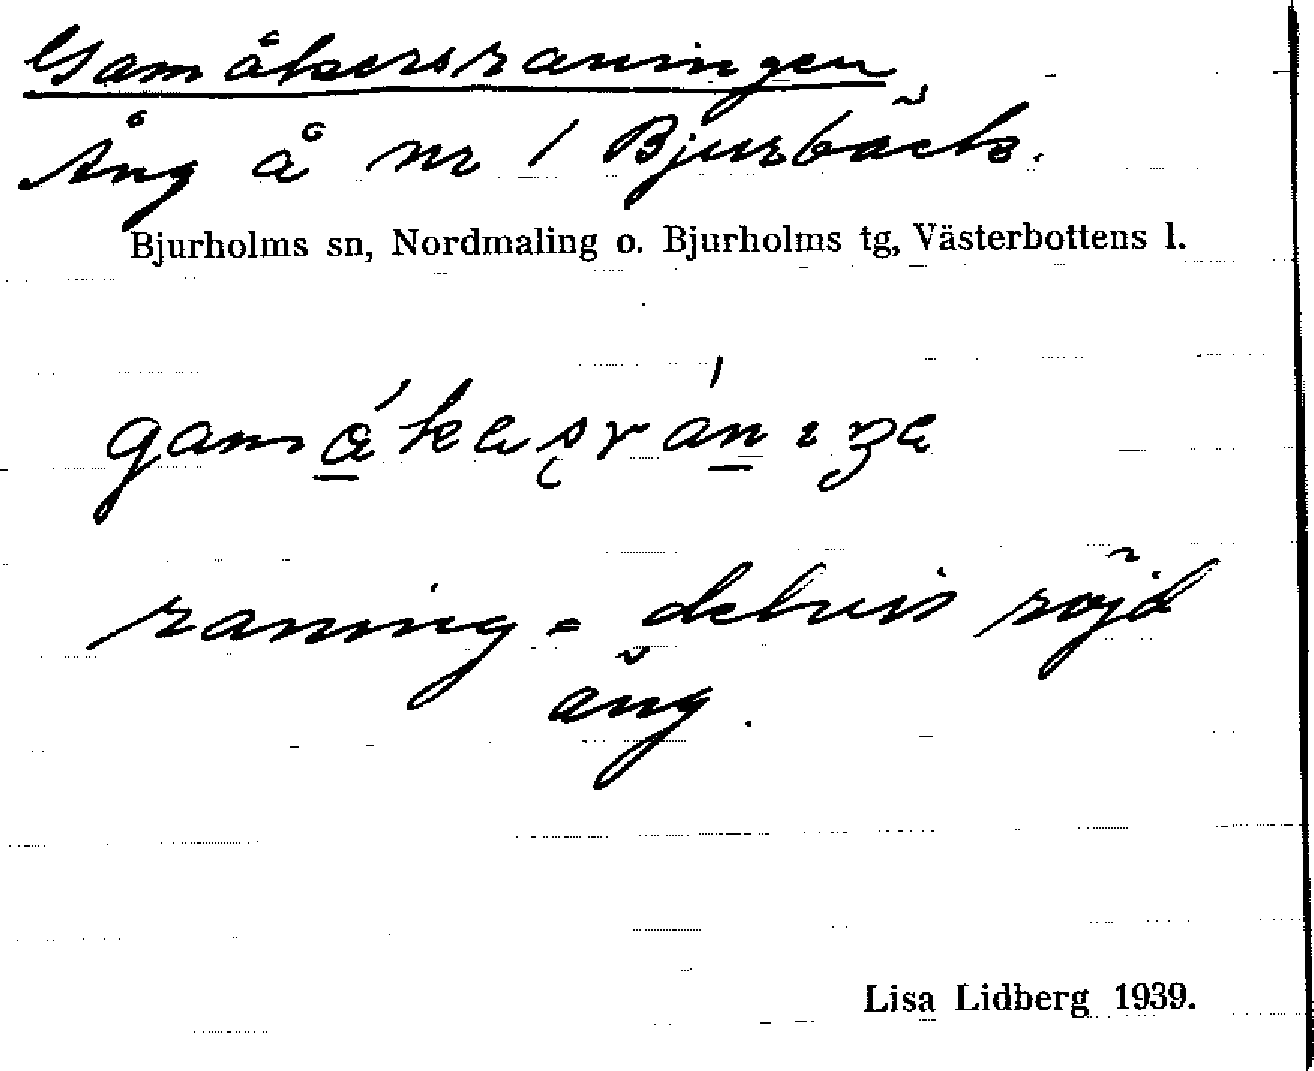 Gamåkersraningen
Äng å nr 1 Bjurbäck.
Bjurholms sn, Nordmaling o. Bjurholms tg, Västerbottens l.
raning = delvis röjd
äng.
Lisa Lidberg 1939.